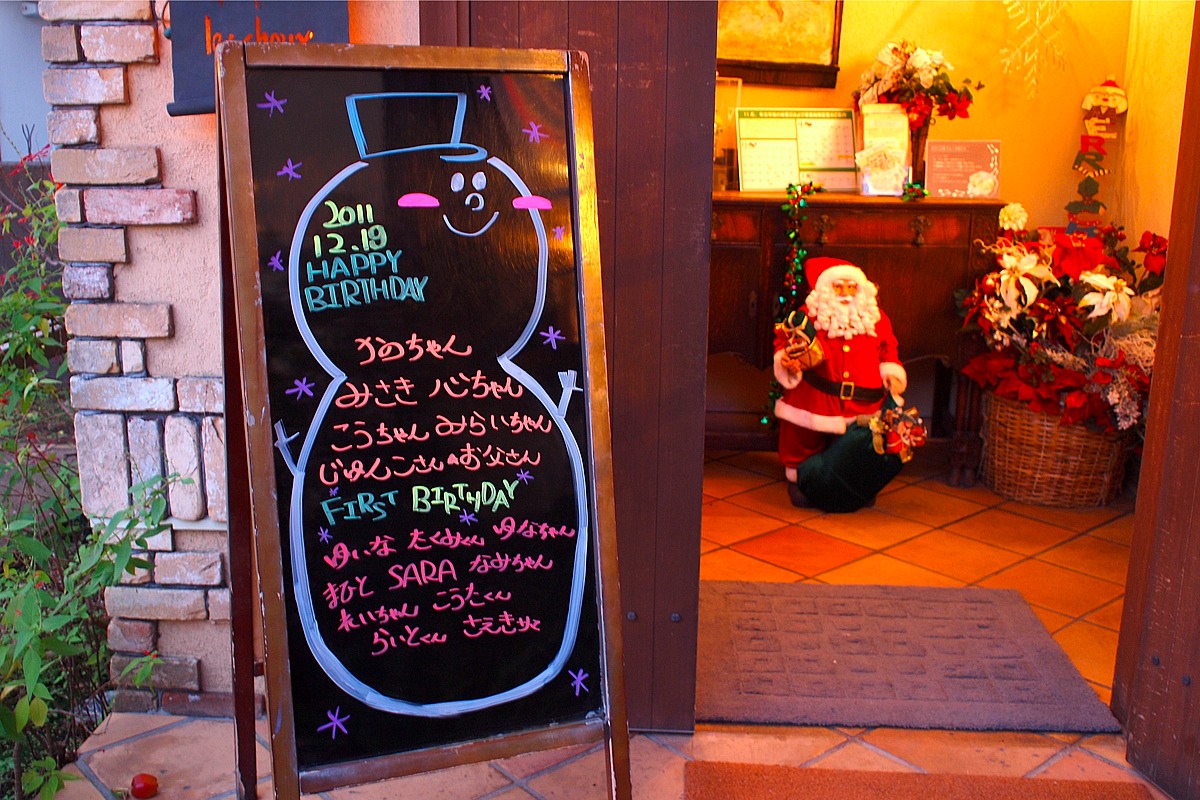 les choux
2011
12.19
HAPPY
BIRTHDAY
かのちゃん
みさき 心ちゃん
こうちゃん みらいちゃん
じゅんこさん お父さん
FIRST BIRTHDAY
ゆいな たくみくん ゆなちゃん
まひと SARA なみちゃん
れいちゃん こうたくん
らいとくん さえき
ERR